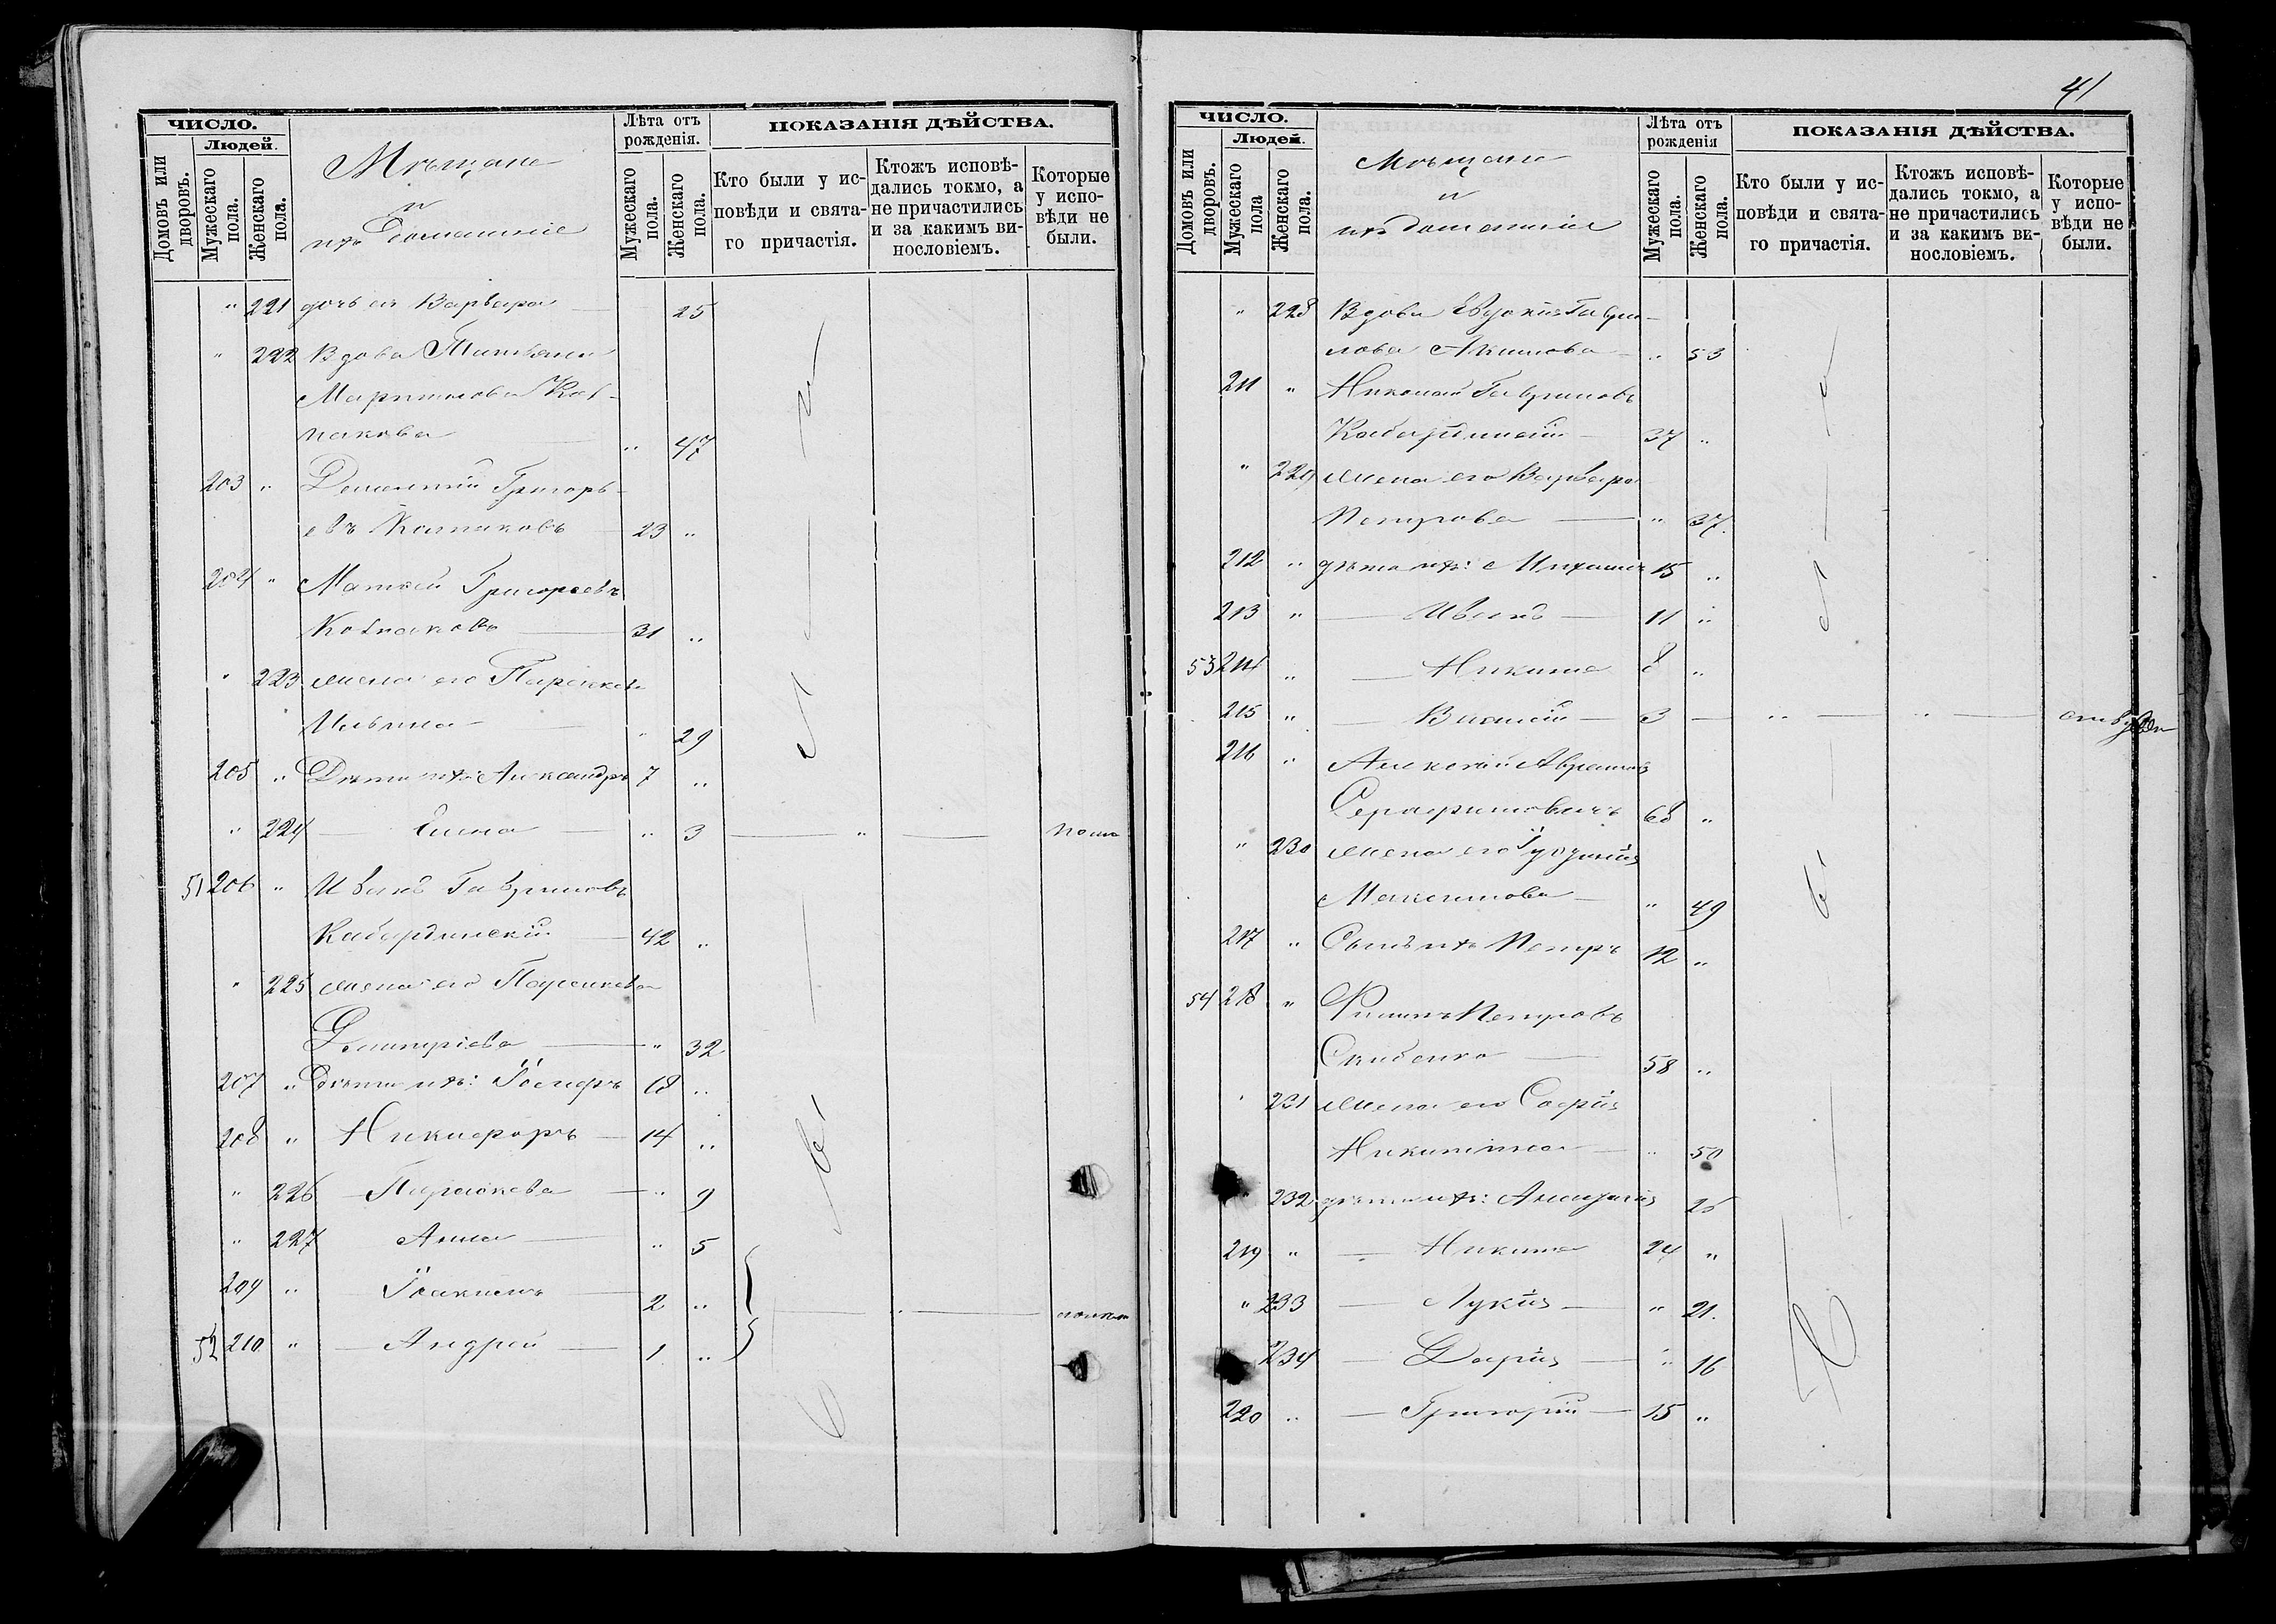 ЧИСЛО.
Людей.
Домовъ или дворовъ.
Мужескаго пола.
Женскаго пола.
Мѣщане
и
ихъ домашніе
Лѣта отъ рожденія.
Мужескаго пола.
Женскаго пола.
ПОКАЗАНІЯ ДѢЙСТВА.
Кто были у ис-
повѣди и свята-
го причастія.
Ктожъ исповѣ-
дались токмо, а
не причастились
и за какимъ ви-
нословіемъ.
Которые
у испо-
вѣди не
были.
" 221 дочь ея Варвара — 25
" 222 Вдова Татьяна
Мартинова Кол-
пакова " 47
203 " Дементій Григорь-
евъ Колпаковъ 23 "
204 " Матвей Григорьевъ
Колпаковъ — 31 "
" 223 жена его Параскева
Ильина — " 29
205 " Дѣти ихъ: Александръ 7 "
" 224 — Елена — " 3 — " —
51 206 " Иванъ Гавриловъ
Кабардинскій — 42 "
" 225 жена его Параскева
Димитріева — " 32
207 " Дѣти ихъ: Іосифъ 18 "
208 " Никифоръ — 14 "
" 226 — Параскева — " 9
" 227 Анна — " 5
209 " Іоакимъ 2 "
52 210 " — Андрей — 1 " — " —
41
ЧИСЛО.
Людей.
Домовъ или дворовъ.
Мужескаго пола
Женскаго пола.
Мѣщане
и
ихъ домашніе
Лѣта отъ рожденія
Мужескаго пола.
Женскаго пола.
ПОКАЗАНІЯ ДѢЙСТВА.
Кто были у ис-
повѣди и свята-
го причастія.
Ктожъ исповѣ-
дались токмо, а
не причастились
и за какимъ ви-
нословіемъ.
Которые
у испо-
вѣди не
были.
" 228 Вдова Евдокія Гаври-
лова Акимова — " 53
211 " Николай Гавриловъ
Кабардинскій — 37 "
" 229 жена его Варвара
Петрова — " 37.
212 " дѣти ихъ: Михаилъ 15 "
213 " — Иванъ — 11 "
53 214 " — Никита 8 "
215 " — Василій — 3 — " — " —
216 " Алексѣй Аврамовъ
68 "
" 230 жена его
Максимова — " 49
217 " Сынъ ихъ Петръ 12 "
54 218 " Филипъ Петровъ
Скибенко — 58 "
" 231 жена его Софія
Никитина — " 50
" 232 дѣти ихъ: 26
219 " — Никита 24 "
" 233 — Лукія — " 21.
234 — Дарія — " 16
220 " — Григорій — 15 "